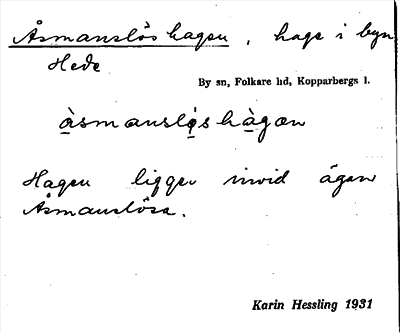 Åsmanslöshagen, hage i byn
Hede
By sn, Folkare hd, Kopparbergs l.
àsmanslø̀shàgan
Hagen ligger invid ägan
Åsmanslösa.
Karin Hessling 1931